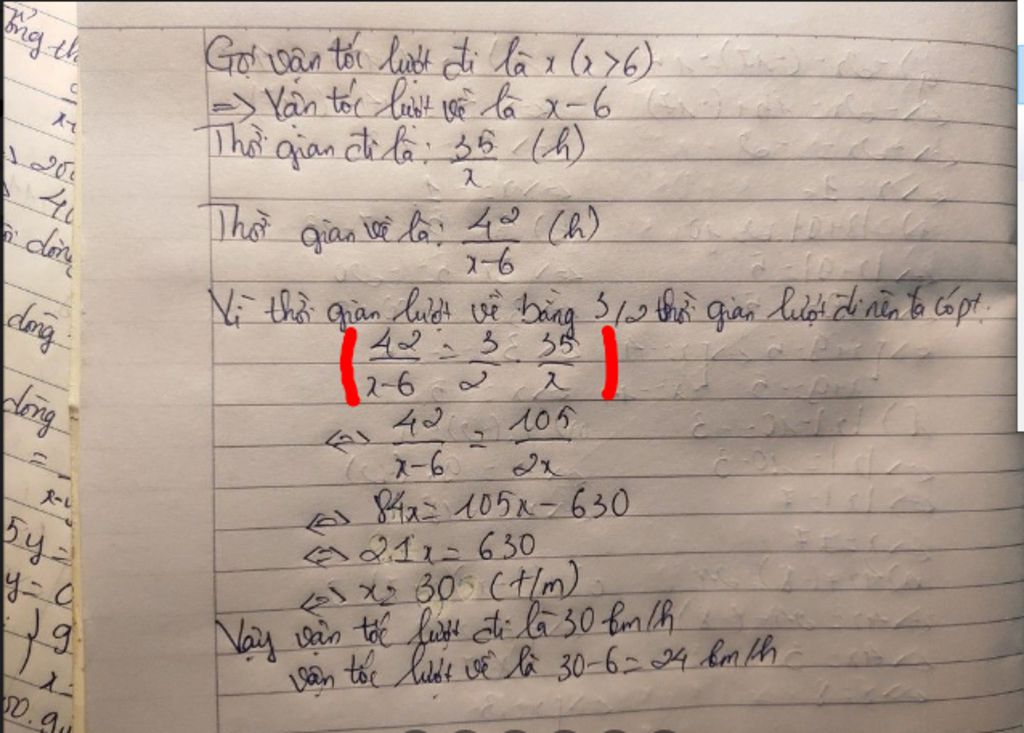 ổng th
x-
200
40
dòng
dòng
dòng
=
x-y
5y=
y= 0
9
x-
50.9y
Gọi vận tốc lượt đi là x (x>6)
=> Vận tốc lượt về là x-6
Thời gian đi là: 35/x (h)
Thời gian về là: 42/x-6 (h)
Vì thời gian lượt về bằng 3/2 thời gian lượt đi nên ta có pt.
42/x-6 = 3/2 . 35/x
<=> 42/x-6 = 105/2x
<=> 84x= 105x- 630
<=> 21x= 630
<=> x= 30 (t/m)
Vậy vận tốc lượt đi là 30 km/h
vận tốc lượt về là 30-6= 24 km/h